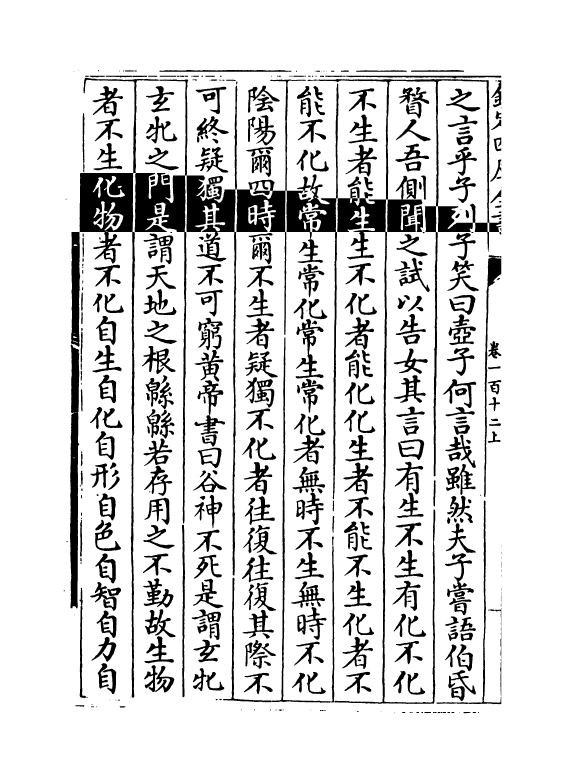 欽定四庫全書
卷一百十二上
之言乎子列子笑曰壺子何言哉雖然夫子嘗語伯昏
瞀人吾側聞之試以告女其言曰有生不生有化不化
不生者能生生不化者能化化生者不能不生化者不
能不化故常生常化常生常化者無時不生無時不化
陰陽爾四時爾不生者疑獨不化者往復往復其際不
可終疑獨其道不可窮黄帝書曰谷神不死是謂玄牝
玄牝之門是謂天地之根緜緜若存用之不勤故生物
者不生化物者不化自生自化自形自色自智自力自